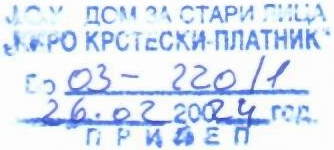 Ј.О.У. ДОМ ЗА СТАРИ ЛИЦА
„КИРО КРСТЕСКИ-ПЛАТНИК"
Бр 03-220/1
26.02 2024 год.
ПРИЛЕП